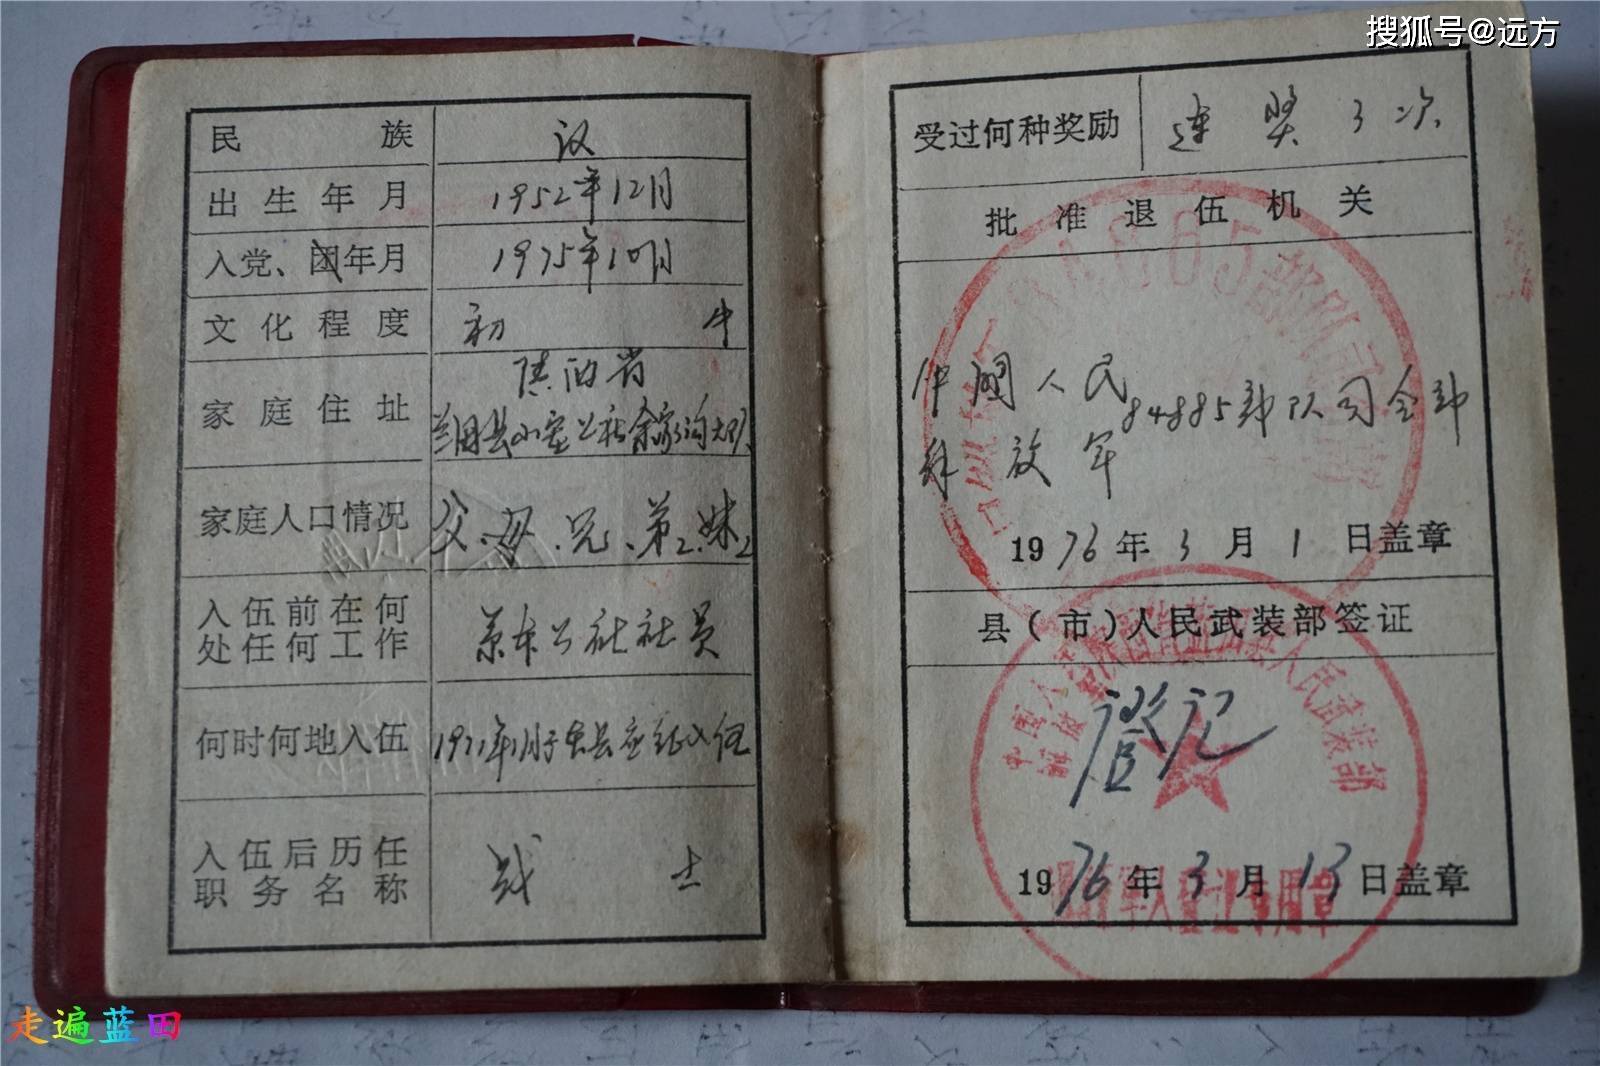 搜狐号@远方
民族 汉
出生年月 1952年12月
入党、团年月 1975年10月
文化程度 初中
家庭住址 陕西省
兰田县小寨公社余家沟大队
家庭人口情况 父、母、兄、弟2、妹2
入伍前在何处任何工作 社社员
何时何地入伍 应征入伍
入伍后历任职务名称 战士
受过何种奖励 连奖3次
批准退伍机关
中国人民解放军84885部队司令部
1976年3月1日盖章
县(市)人民武装部签证
登记
1976年3月13日盖章
人民武装部
走遍蓝田